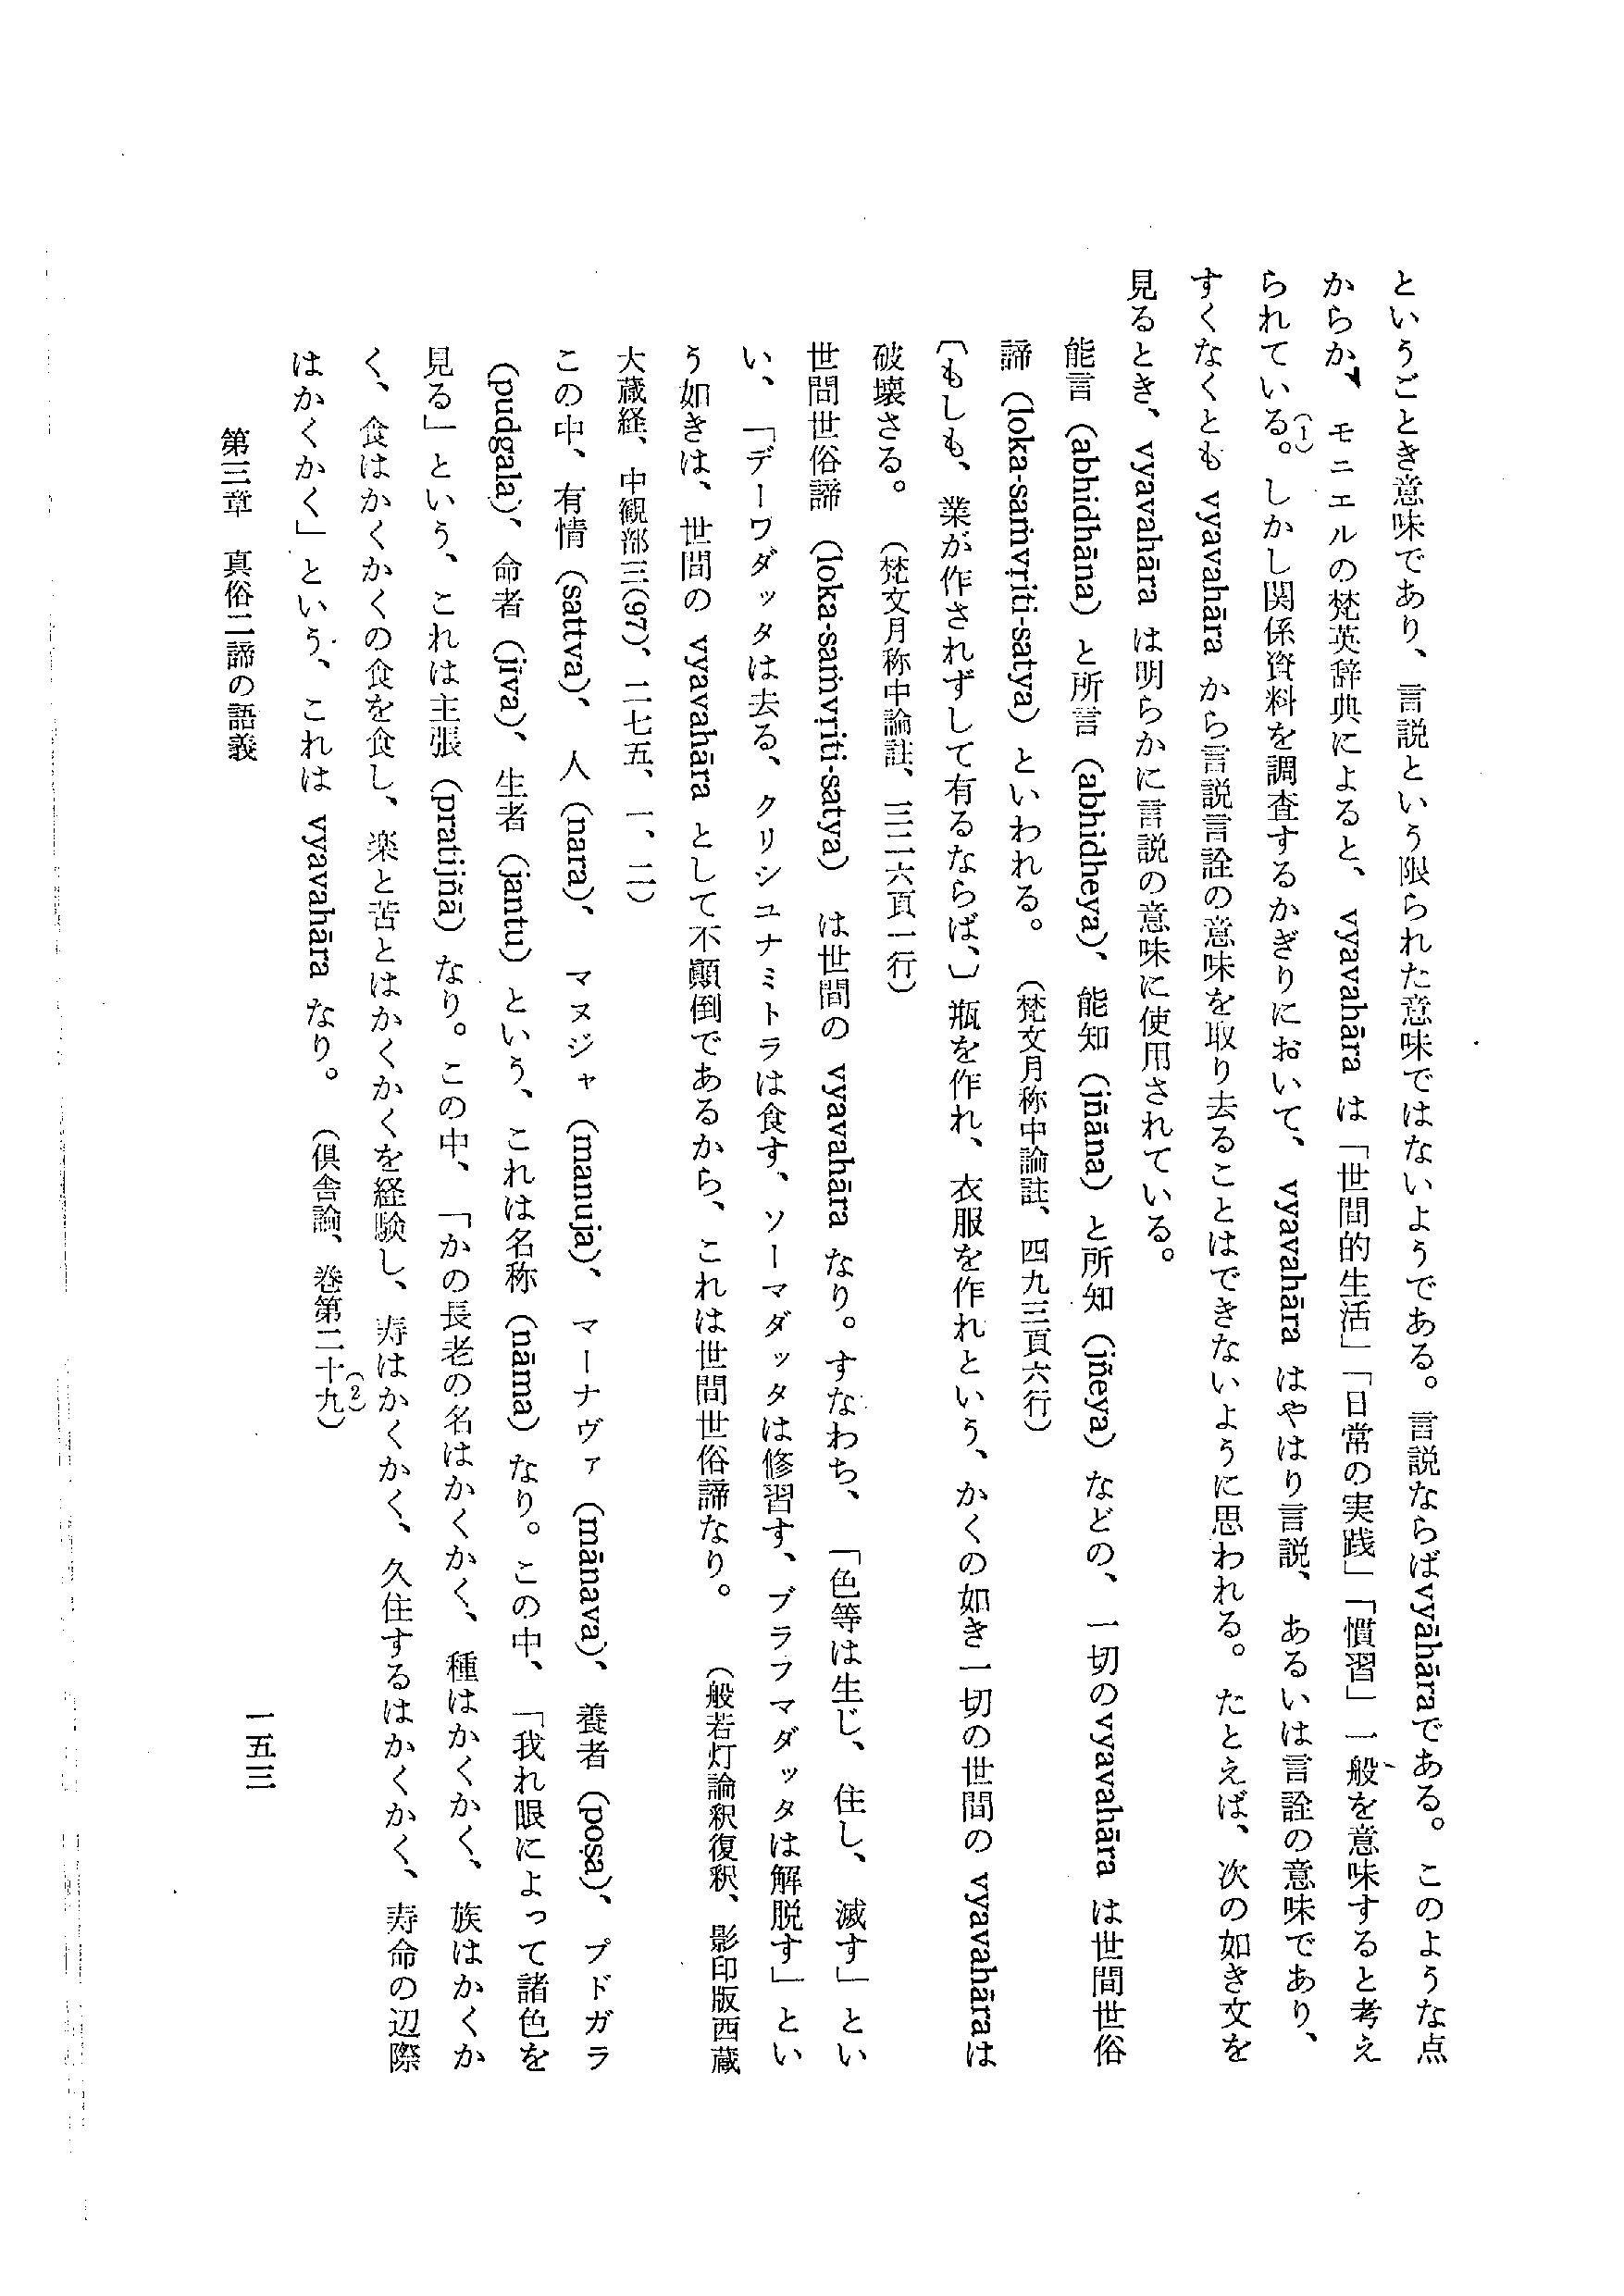 というごとき意味であり、言説という限られた意味ではないようである。言説ならばvyāhāraである。このような点
からか、モニエルの梵英辞典によると、vyavahāra は「世間的生活」「日常の実践」「慣習」一般を意味すると考え
られている。(1)しかし関係資料を調査するかぎりにおいて、vyavahāra はやはり言説、あるいは言詮の意味であり、
すくなくとも vyavahāra から言説言詮の意味を取り去ることはできないように思われる。たとえば、次の如き文を
見るとき、vyavahāra は明らかに言説の意味に使用されている。
能言 (abhidhāna) と所言 (abhidheya)、能知 (jñāna) と所知 (jñeya) などの、一切のvyavahāra は世間世俗
諦 (loka-saṁvṛiti-satya) といわれる。 (梵文月称中論註、四九三頁六行)
〔もしも、業が作されずして有るならば、〕瓶を作れ、衣服を作れという、かくの如き一切の世間の vyavahāraは
破壊さる。 (梵文月称中論註、三二六頁一行)
世間世俗諦 (loka-saṁvṛiti-satya) は世間の vyavahāra なり。すなわち、「色等は生じ、住し、滅す」とい
い、「デーワダッタは去る、クリシュナミトラは食す、ソーマダッタは修習す、ブラフマダッタは解脱す」とい
う如きは、世間の vyavahāra として不顚倒であるから、これは世間世俗諦なり。 (般若灯論釈復釈、影印版西蔵
大蔵経、中観部三(97)、二七五、一、二)
この中、有情 (sattva)、人 (nara)、マヌジャ (manuja)、マーナヴァ (mānava)、養者 (poṣa)、プドガラ
(pudgala)、命者 (jīva)、生者 (jantu) という、これは名称 (nāma) なり。この中、「我れ眼によって諸色を
見る」という、これは主張 (pratijñā) なり。この中、「かの長老の名はかくかく、種はかくかく、族はかくか
く、食はかくかくの食を食し、楽と苦とはかくかくを経験し、寿はかくかく、久住するはかくかく、寿命の辺際
はかくかく」という、これは vyavahāra なり。 (倶舎論、巻第二十九)(2)
第三章 真俗二諦の語義
一五三